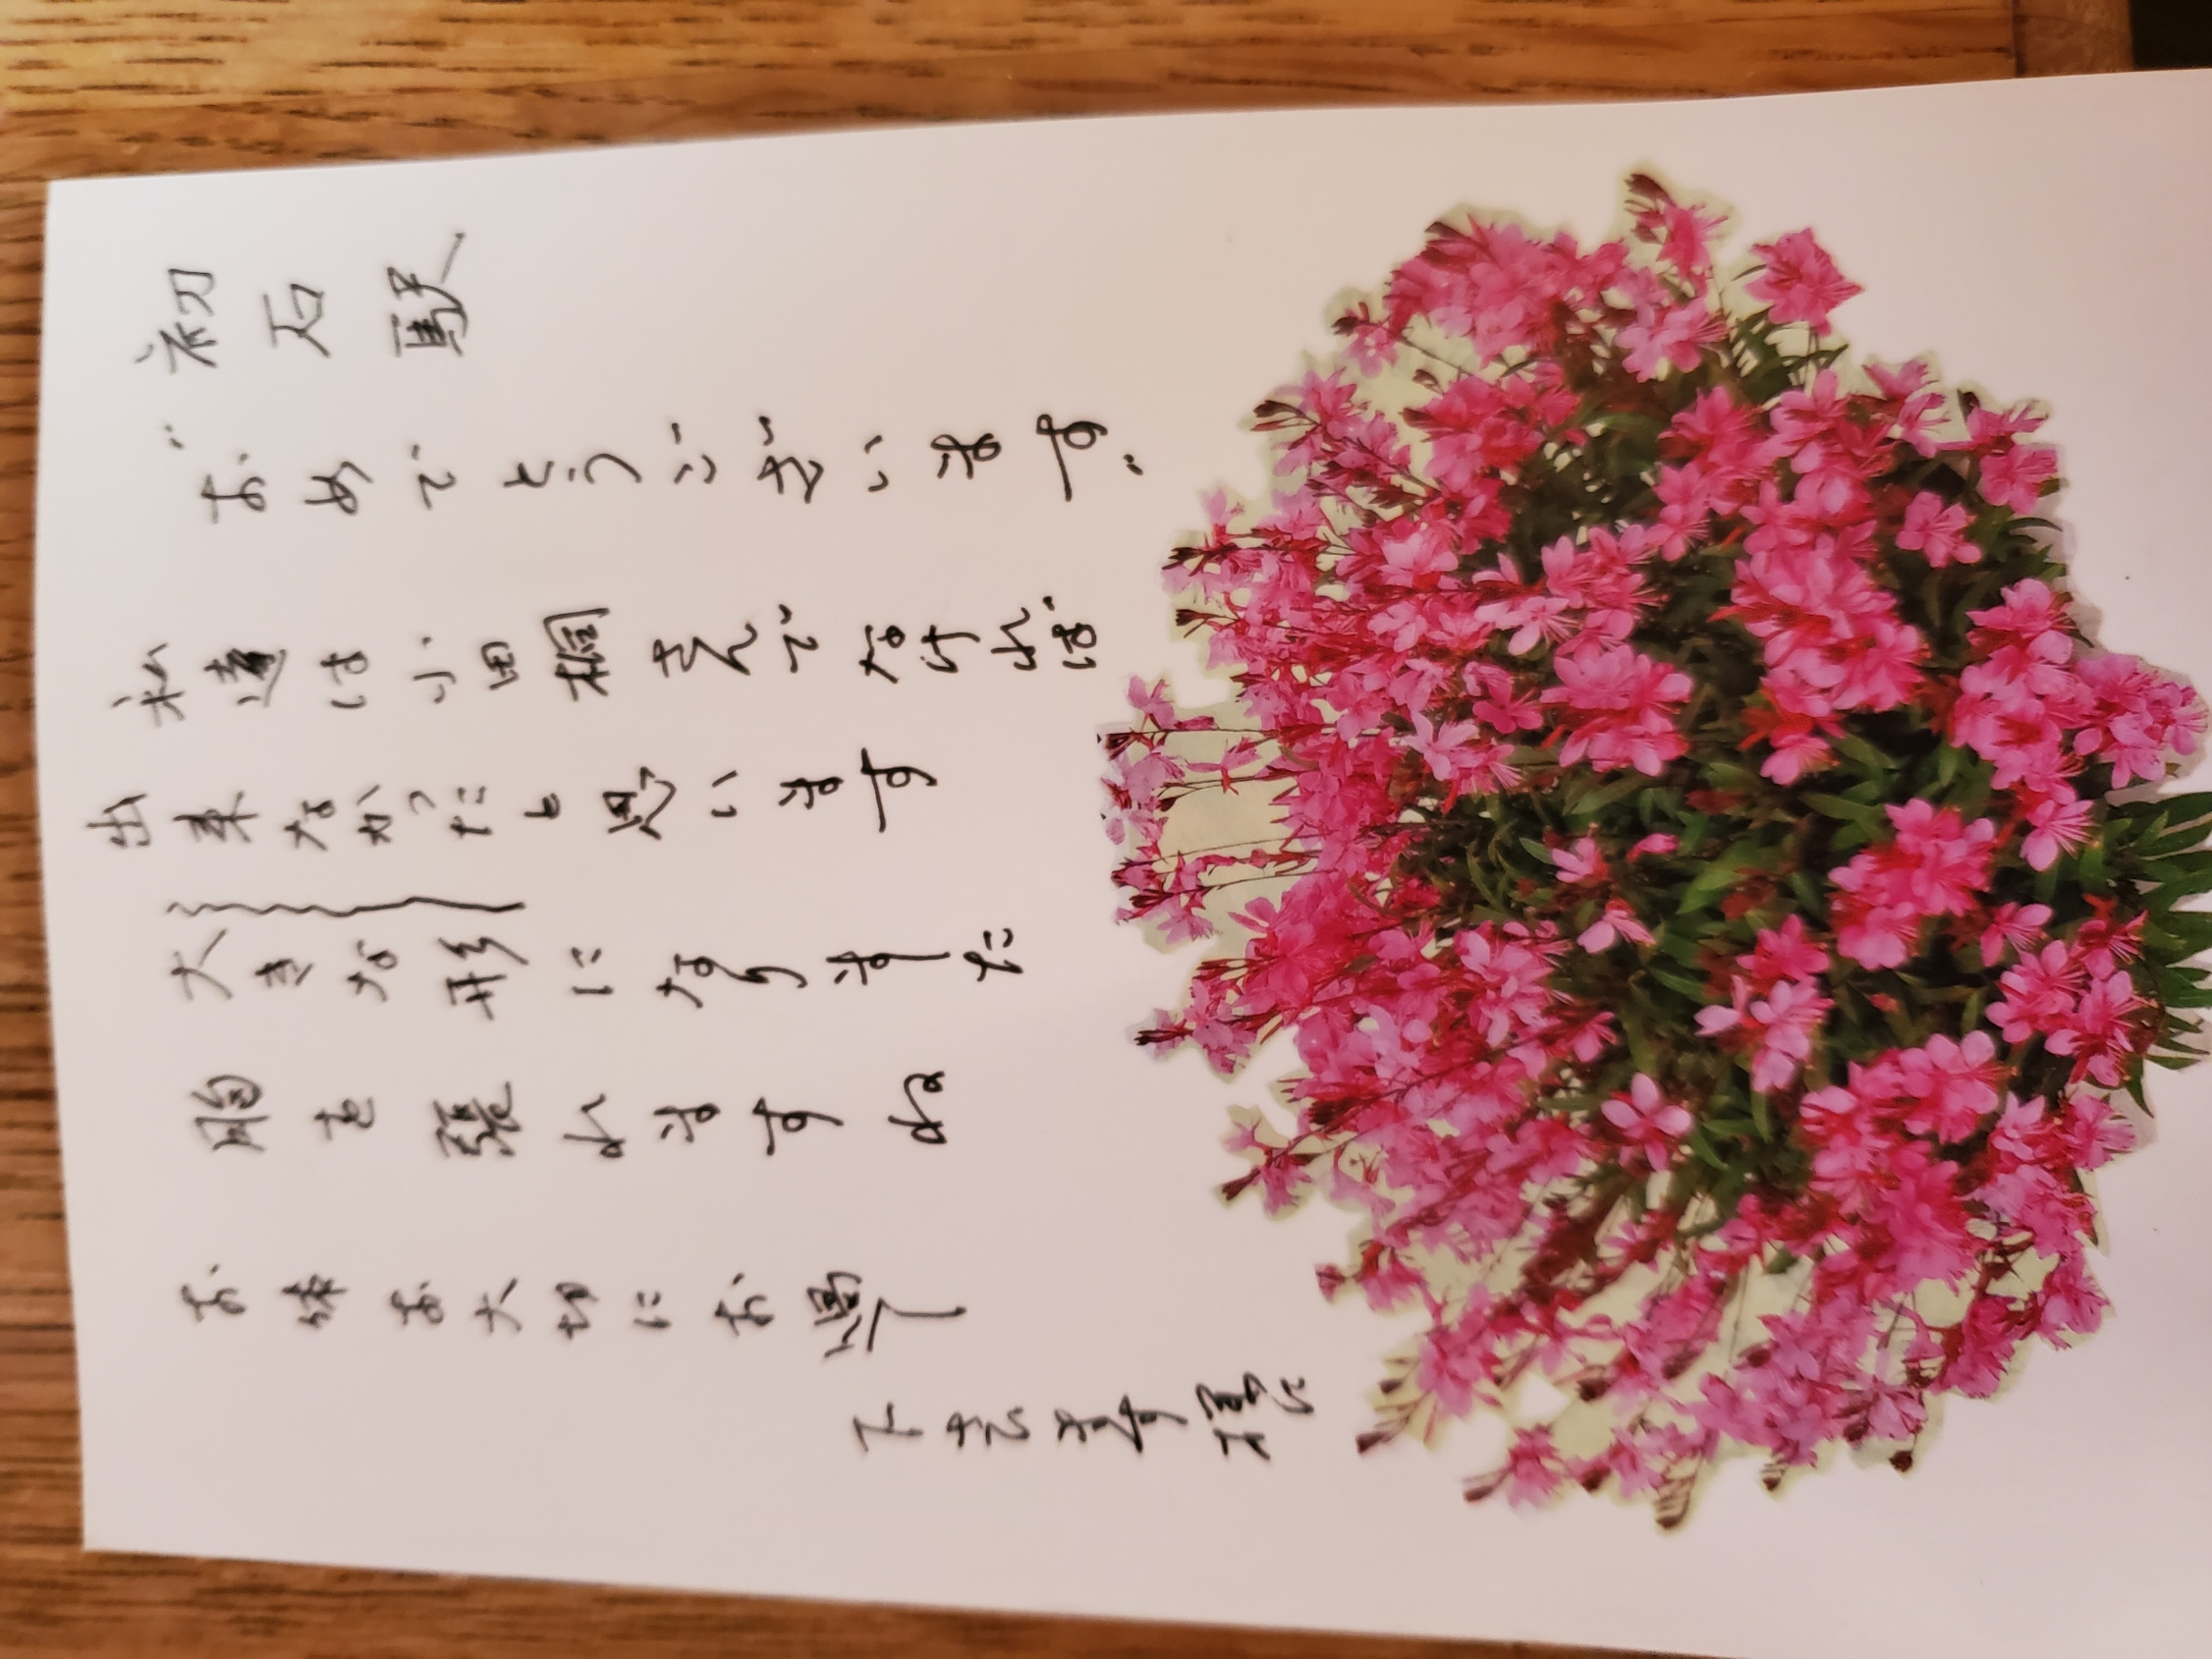 初石駅
〝おめでとうございます〟
私達は小田桐さんでなければ
出来なかったと思います
大きな形になりました
胸を張れますね
お体お大切にお過し
下さいます様に